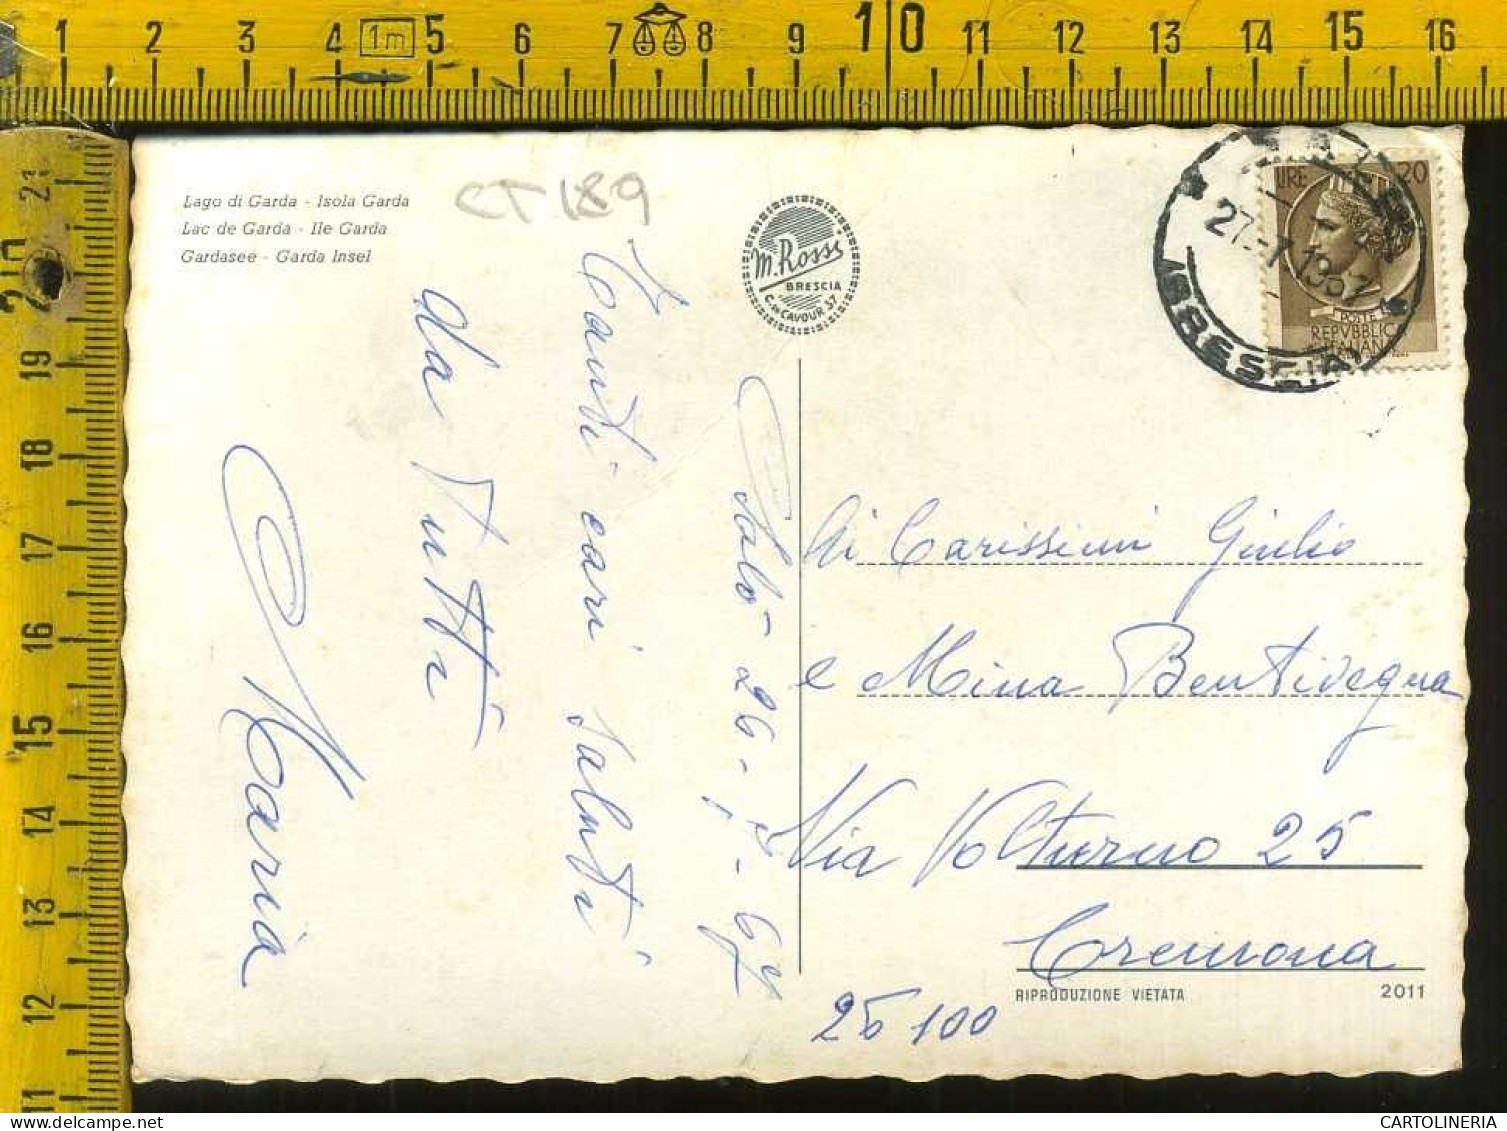 1 2 3 4 1m 5 6 7 8 9 10 11 12 13 14 15 16
21
20
19
18
17
16
15
14
13
12
11
Lago di Garda - Isola Garda
Lac de Garda - Ile Garda
Gardasee - Garda Insel
CT 189
M. Rossi
BRESCIA
C. CAVOUR 37
LIRE 20
POSTE
REPVBBLICA
ITALIANA
27-7 1967
BRESCIA
Salò - 26-7-67
Tanti cari saluti
da tutti
Maria
Ai Carissimi Giulio
e Mina Bentivegna
Via Volturno 25
Cremona
26100
RIPRODUZIONE VIETATA 2011
CARTOLINERIA